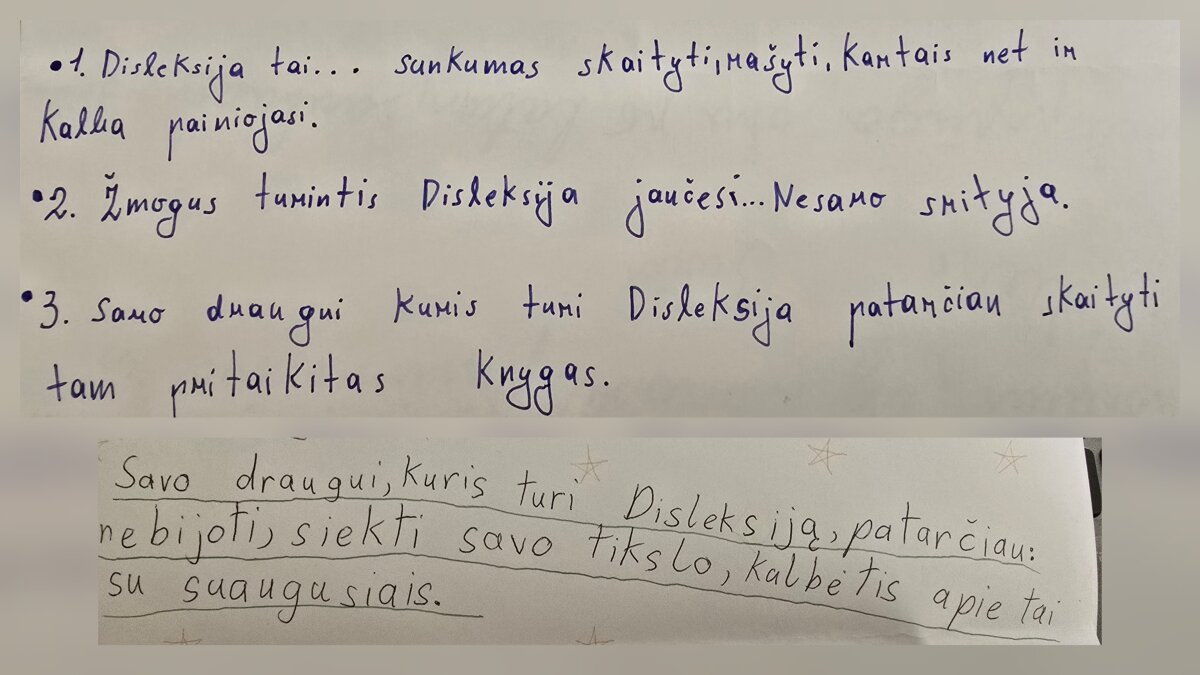 •1. Disleksija tai... sunkumas skaityti, rašyti, kartais net ir
kalba painiojasi.
•2. Žmogus turintis Disleksija jaučesi... Nesavo srityja.
•3. Savo draugui kuris turi Disleksija patarčiau skaityti
tam pritaikitas knygas.
Savo draugui, kuris turi Disleksiją, patarčiau:
nebijoti, siekti savo tikslo, kalbėtis apie tai
su suaugusiais.